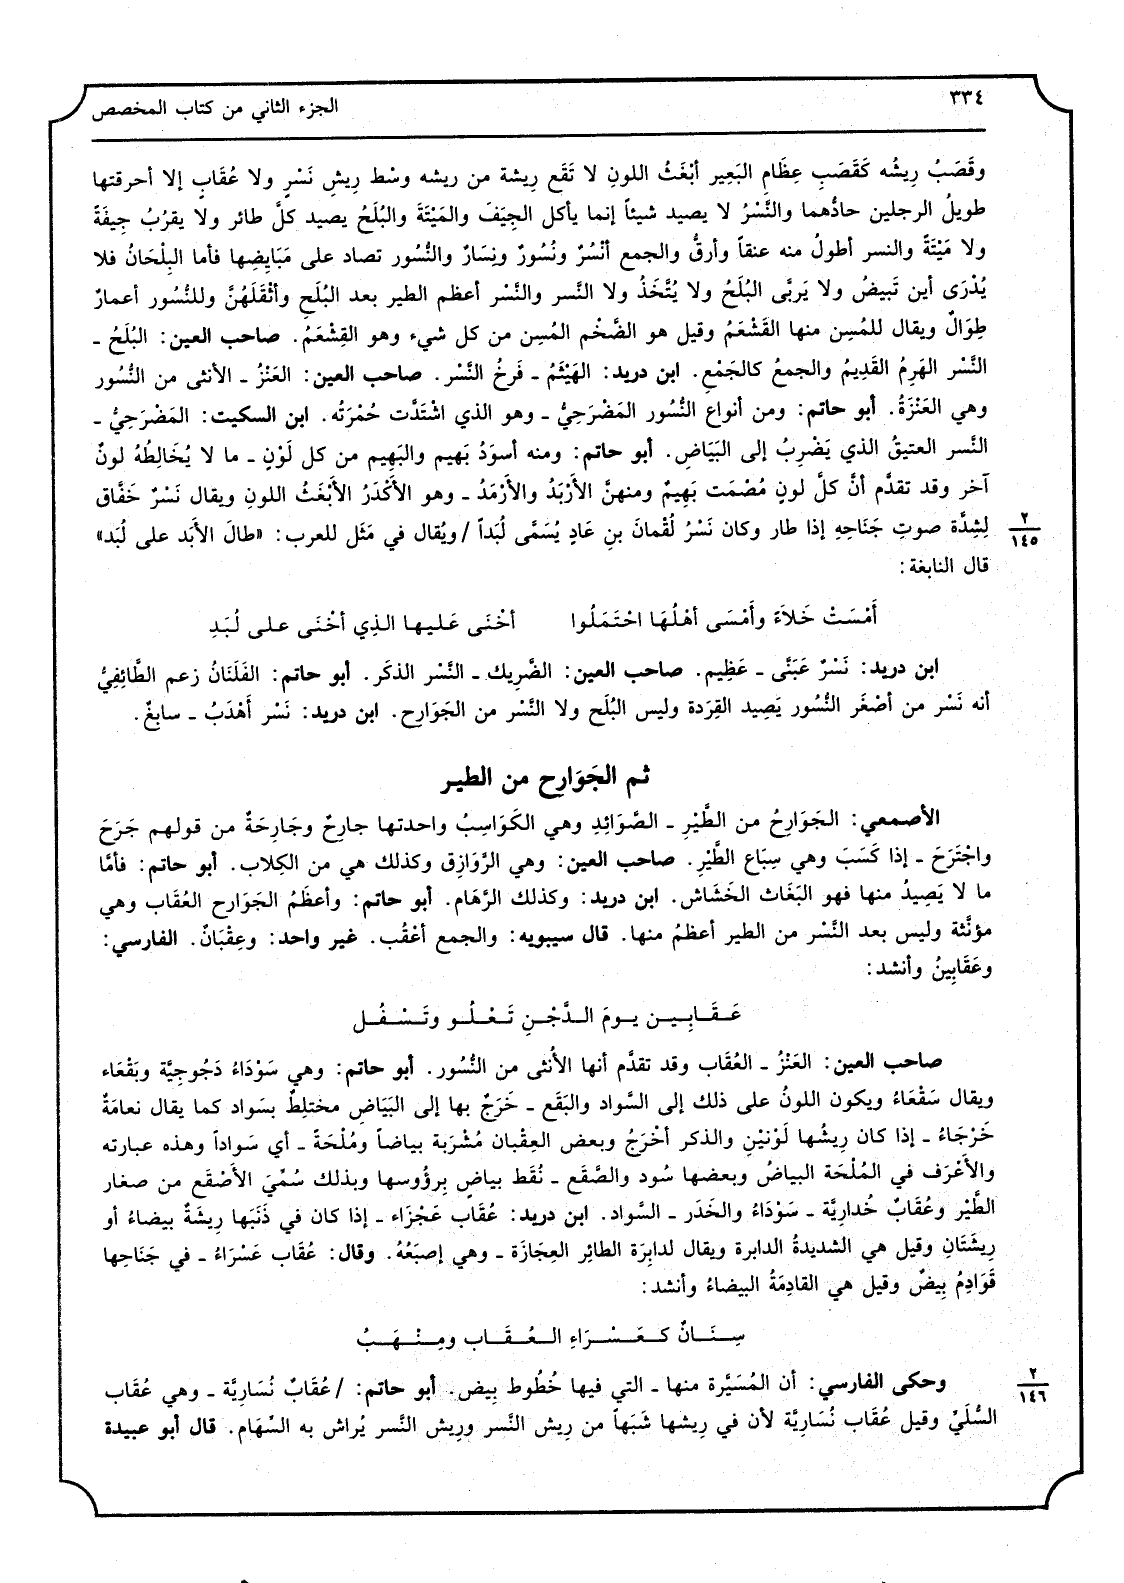 ٣٣٤
الجزء الثاني من كتاب المخصص
وقَصَبُ رِيشُه كَقَصَبِ عِظَامِ البَعِير أبْغَثُ اللونِ لا تَقَع رِيشة من ريشه وسْط رِيشِ نَسْرٍ ولا عُقَابٍ إلا أحرقتها
طويلُ الرجلين حادُّهما والنَّسْرُ لا يصيد شيئاً إنما يأكل الجِيَفَ والمَيْتَةَ والبُلَحُ يصيد كلَّ طائر ولا يقرُبُ جِيفَةً
ولا مَيْتَةً والنسر أطولُ منه عنقاً وأرقُّ والجمع أنْسُرٌ ونُسُورٌ ونِسَارٌ والنُّسُور تصاد على مَبَايِضِها فأما البِلْحَانُ فلا
يُدْرَى أين تَبيضُ ولا يَربَّى البُلَحُ ولا يُتَّخَذُ ولا النَّسر والنَّسر أعظم الطير بعد البُلَحِ وأثْقَلَهُنَّ وللنُّسُور أعمارٌ
طِوَالٌ ويقال للمُسِن منها القَشْعَمُ وقيل هو الضَّخْم المُسِن من كل شيء وهو القِشْعَمُ. صاحب العين: البُلَحُ ـ
النَّسْر الهَرِمُ القَدِيمُ والجمعُ كالجَمْعِ. ابن دريد: الهَيْثَمُ ـ فَرخُ النَّسْر. صاحب العين: العَنْزُ ـ الأنثى من النُّسُور
وهي العَنْزَةُ. أبو حاتم: ومن أنواع النُّسُور المَضْرَحِيُّ ـ وهو الذي اشْتَدَّت حُمْرَتُه. ابن السكيت: المَضْرَحِيُّ ـ
النَّسر العتيقُ الذي يَضْرِبُ إلى البَيَاضِ. أبو حاتم: ومنه أسوَدُ بَهيم والبَهِيم من كل لَوْنٍ ـ ما لا يُخَالِطُهُ لونٌ
آخر وقد تقدَّم أنَّ كلَّ لونٍ مُصْمَت بَهِيمٌ ومنهنَّ الأَرْبَدُ والأَرْمَدُ ـ وهو الأَكْدَرُ الأَبْغَثُ اللونِ ويقال نَسْرٌ خَفَّاق
لِشِدَّة صوتِ جَنَاحِهِ إذا طار وكان نَسْرُ لُقْمانَ بنِ عَادٍ يُسَمَّى لُبَداً /ويُقال في مَثَل للعرب: «طالَ الأبَد على لُبَد»
٢
١٤٥
قال النابغة:
أَمْسَتْ خَلاَءً وأَمْسَى أهْلُهَا احْتَمَلُوا أخْنَى عَليها الذِي أخْنَى على لُبَدِ
ابن دريد: نَسْرٌ عَبَنَّى ـ عَظِيم. صاحب العين: الضَّرِيك ـ النَّسْر الذكَر. أبو حاتم: الفَلَتَانُ زعم الطَّائِفِيُّ
أنه نَسْر من أصْغَر النُّسُور يَصِيد القِرَدة وليس البُلَح ولا النَّسْر من الجَوَارِح. ابن دريد: نَسْر أَهْدَبُ ـ سابِغٌ.
ثم الجَوَارِح من الطير
الأصمعي: الجَوَارِحُ من الطَّيْرِ ـ الصَّوَائِدِ وهي الكَوَاسِبُ واحدتها جارِحٌ وجَارِحَةٌ من قولهم جَرَحَ
واجْتَرَحَ ـ إذا كَسَبَ وهي سِبَاع الطَّيْرِ. صاحب العين: وهي الرَّوَازِق وكذلك هي من الكِلاب. أبو حاتم: فأمَّا
ما لا يَصِيدُ منها فهو البَغَاث الخَشَاش. ابن دريد: وكذلك الرَّهَام. أبو حاتم: وأعظَمُ الجَوَارح العُقَاب وهي
مؤنَّثة وليس بعد النَّسْر من الطير أعظمُ منها. قال سيبويه: والجمع أعْقُب. غير واحد: وعِقْبَانٌ. الفارسي:
وعَقَابِينُ وأنشد:
عَقَابِين يومَ الدَّجْنِ تَعْلُو وتَسْفُل
صاحب العين: العَنْزُ ـ العُقَاب وقد تقدَّم أنها الأُنثى من النُّسُور. أبو حاتم: وهي سَوْدَاءُ دَجُوجِيَّة وبَقْعَاء
ويقال سَقْعَاءُ ويكون اللونُ على ذلك إلى السَّواد والبَقَع ـ خَرَجٌ بها إلى البَيَاضِ مختلِطٌ بسَواد كما يقال نعامَةٌ
خَرْجَاءُ ـ إذا كان رِيشُها لَوْنيْنِ والذكر أخْرَجُ وبعض العِقْبان مُشْرَبة بياضاً ومُلْحَةً ـ أي سَواداً وهذه عبارته
والأَعْرَف في المُلْحَة البياضُ وبعضها سُود والصَّقَع ـ نُقَط بياضٍ بِرؤُوسها وبذلك سُمِّيَ الأَصْقَع من صغار
الطَّيْر وعُقَابٌ خُدارِيَّة ـ سَوْدَاءُ والخَدَر ـ السَّواد. ابن دريد: عُقَاب عَجْزَاء ـ إذا كان في ذَنَبَها رِيشَةٌ بيضاءُ أو
رِيشَتَانِ وقيل هي الشديدةُ الدابرة ويقال لدابِرَة الطائِر العِجَازَة ـ وهي إصبَعُهُ. وقال: عُقَاب عَسْرَاءُ ـ في جَنَاحِها
قَوَادِمُ بِيضٌ وقيل هي القادِمَةُ البيضاءُ وأنشد:
سِنَانٌ كعَسْرَاءِ العُقَاب ومِنْهَبُ
وحكى الفارسي: أن المُسَيَّرة منها ـ التي فيها خُطُوط بِيض. أبو حاتم: /عُقَابٌ نُسَارِيَّة ـ وهي عُقَاب
٢
١٤٦
السُّلَيِّ وقيل عُقَاب نُسَارِيَّة لأن في رِيشها شَبَهاً من رِيش النَّسر ورِيش النَّسر يُراش به السِّهَام. قال أبو عبيدة